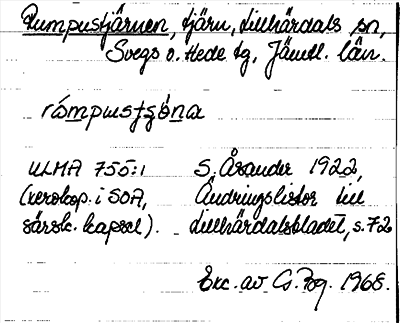 Rumpustjärnen, tjärn, Lillhärdals sn,
Svegs o. Hede tg, Jämtl. län.
rómpustjǫ́na
ULMA 755:1 S. Åsander 1922,
(xerokop. i SOA, Ändringslistor till
särsk. kapsel). Lillhärdalsbladet, s. 72
Exc. av G. Pg. 1968.